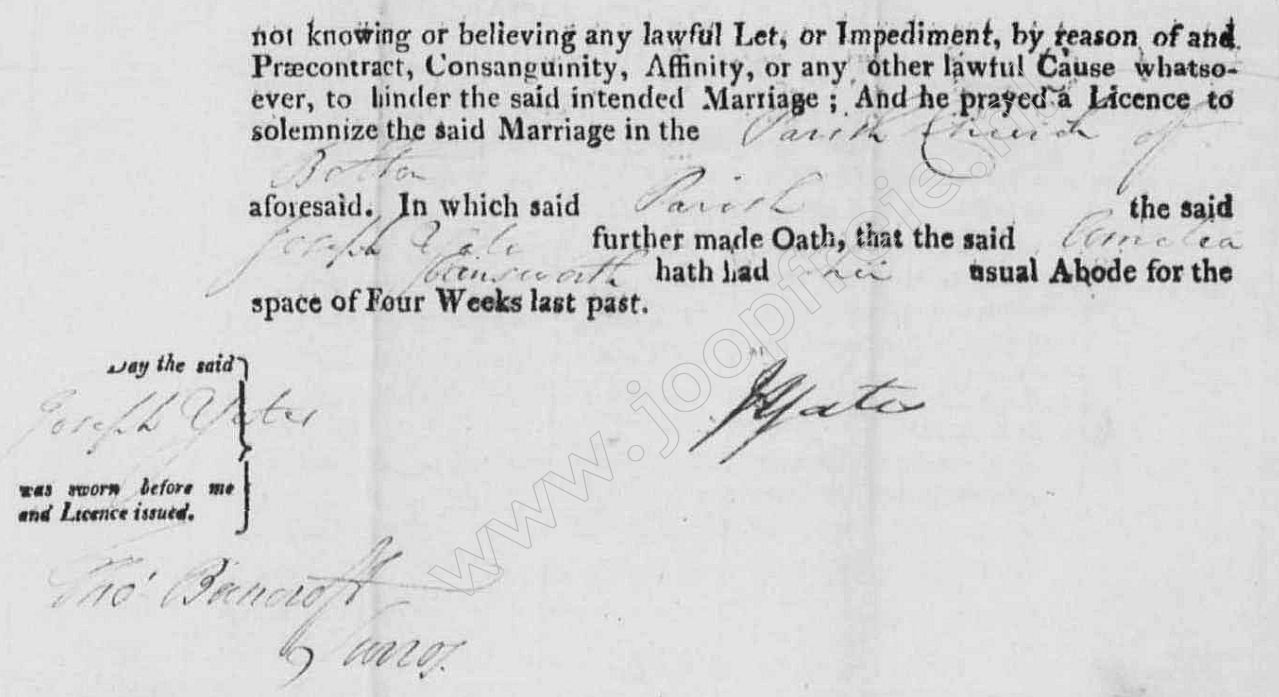 not knowing or believing any lawful Let, or Impediment, by reason of and
Præcontract, Consanguinity, Affinity, or any other lawful Cause whatso-
ever, to hinder the said intended Marriage; And he prayed a Licence to
solemnize the said Marriage in the Parish Church of
Bolton
aforesaid. In which said Parish the said
Joseph Yates further made Oath, that the said Amelia
hath had her usual Abode for the
space of Four Weeks last past.
Day the said
Joseph Yates
JYates
was sworn before me
and Licence issued.
Tho' Bancroft
Surrog.
www.joopfreie.nl